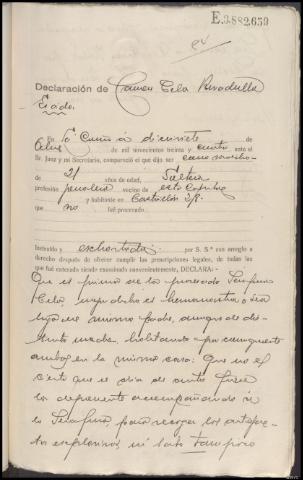 E.3.882.659
Declaración de Carmen Cela
En La Coruña a diecisiete de
de mil novecientos treinta y cuatro ante el
Sr. Juez y mi Secretario, compareció el que dijo ser como
de 21 años de edad, Soltera
profesión vecino de esta Capital
y habitante en
que no fué procesado.
Instruido y exhortada por S. S.ª con arreglo a
derecho después de ofrecer cumplir las prescripciones legales, de todas las
que fué enterado siendo examinado convenientemente, DECLARA:
Que es prima de la procesada Serafina
Cela, mejor dicho es hermanastra o sea
hija de un mismo padre, aunque de dis-
tinta madre, habitando por consiguiente
ambas en la misma casa: Que no es
cierto que el día de autos fuese
la deponente acompañando a
la Serafina para recoger los artefac-
tos explosivos, ni tampoco